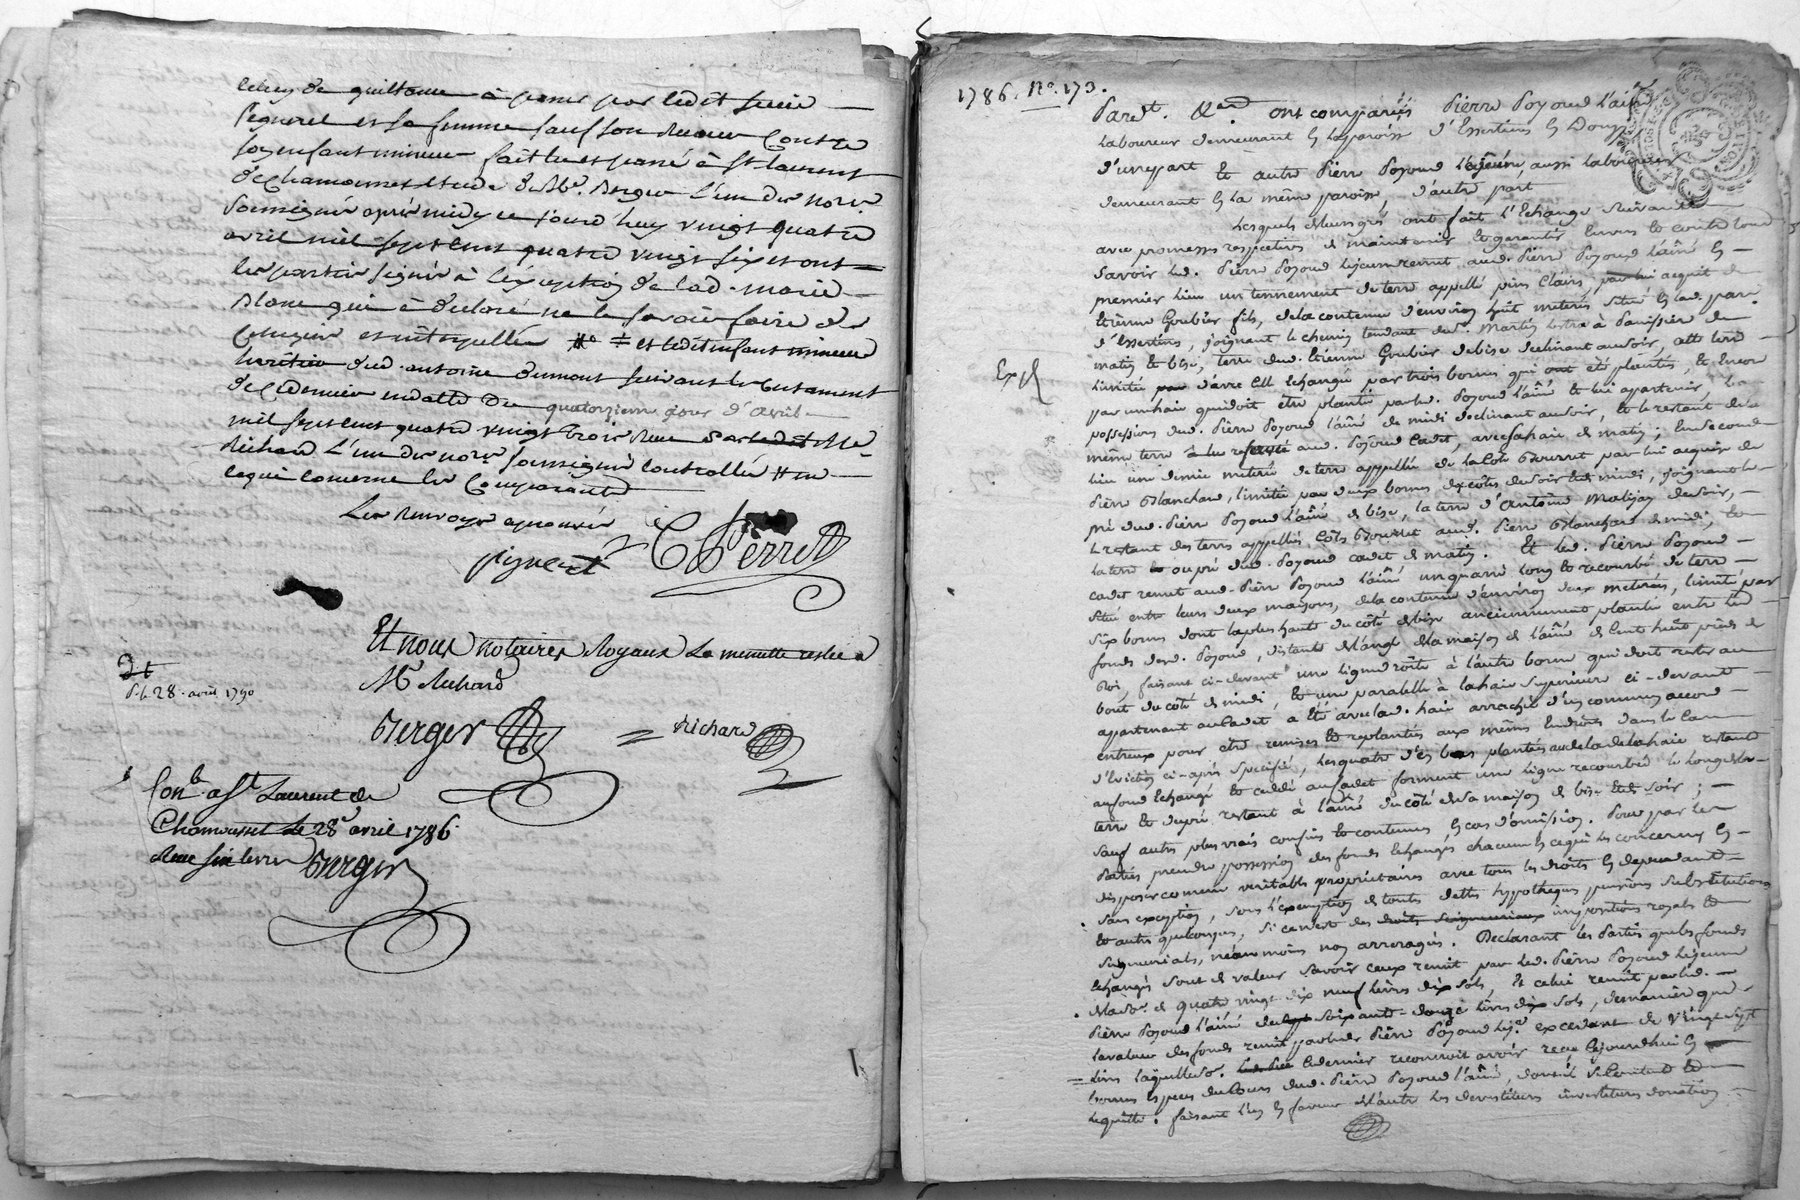 de quittance à passer par ledit sieur
et sa femme sauf son recours Contre
enfant mineur fait lu et passé à St laurent
de Chamousset etude de Me. Berger l'un des nores.
soussignés après midy ce jourd'huy vingt quatre
avril mil sept cent quatre vingt six et ont
les parties signé à l'exception de lad. marie
Blanc qui à declaré ne le savoir faire de
enquise et interpellée et ledit enfant mineur
heritier dud. antoine dumont suivant le testament
de ce dernier en datte du quatorzieme jour d'avril
mil sept cent quatre vingt trois reçu par Me
Richard l'un des nores. soussigné controllé
ce qui concerne les Comparants
Les renvoys approuvés
C Perret
Et nous notaires Royaux La minutte restée a
Me Richard
Berger = Richard
Et
28. avril 1790
Conlé a St Laurent de
Chamousset le 28e avril 1786.
Reçu six livres Berger
1786. No. 173.
Pardt. &a. ont comparûs Pierre Poyoud l'ainé
laboureur demeurant en la paroisse d'Essertines en Donzy
d'une part et autre Pierre Poyoud lejeune, aussi laboureur
demeurant en la même paroisse, d'autre part
Lesquels de leurs grés ont fait l'Echange suivant
avec promesses respectives de maintenir et garantir Envers et contre tous
Savoir led. Pierre Poyoud lejeune remet aud. Pierre Poyoud l'aîné En
premier lieu un tennement de terre appellé pins Clairs, par lui acquit de
Etienne Goubier fils, de la contenue d'environ huit meterés situé en lad. par.
d'Essertines, joignant le chemin tendant de St. Martin Lestra à Panissière de
matin et bise, terre dud. Etienne Goubier de bise declinant au soir, lad. terre
limitée d'avec celle Echangée par trois bornes qui ont été plantées, et Encor
par une haie qui doit être plantée par led. Poyoud l'aîné et lui appartenir, la
possession dud. Pierre Poyoud l'aîné de midi declinant au soir, et le restant de la
même terre à lui reservé aud. Poyoud Cadet, avec sa haie de matin; En second
lieu une demie meterée de terre appellée de la Côte Bourrut par lui acquise de
Pierre Blanchard, limitée par deux bornes des côtés de soir et de midi, joignant le
pré dud. Pierre Poyoud l'aîné de bise, la terre d'Antoine de soir,
le restant des terres appellés Côte Bourrut aud. Pierre Blanchard de midi, et
la terre ou pré dud. Poyoud cadet de matin. Et led. Pierre Poyoud
cadet remet aud. Pierre Poyoud l'aîné un quarré long et recourbé de terre
situé entre leurs deux maisons, de la contenue d'environ deux meterées, limité par
six bornes dont la plus haute du côté de bise anciennement plantée entre les
fonds desd. Poyoud, distante de l'angle de la maison de l'aîné de Cent huit pieds de
Roi, faisant ci-devant une ligne droite à l'autre borne qui doit rester au
bout du côté de midi, et une paralelle à la haie superieure ci-devant
appartenant au Cadet a été avec lad. haie arrachée d'un commun accord
entreux pour être remises et replantées aux mêmes Endroits dans le Cas
d'éviction ci-après specifié, les quatre d'en bas plantées au delà de la haie restant
au fond Echangé et cedé au cadet forment une ligne recourbée le long de la
terre et du pré restant à l'aîné du côté de sa maison de bise et de soir;
Sauf autres plus vrais confins et contenues, en cas d'omission. Pour par les
Parties prendre possession des fonds Echangés chacun en ce qui les concerne En
disposer comme veritables proprietaires avec tous les droits en dependants
sans exception, sous l'exemption de toutes dettes hypothèques pensions substitutions
et autres quelconques, si ce n'est des droits seigneuriaux impositions royales et
seigneuriales, néanmoins non arreragés. Declarant les Parties que les fonds
Echangés sont de valeur savoir ceux remit par led. Pierre Poyoud lejeune
de la so. de quatre vingt dix neuf livres dix sols, et celui remit par led.
Pierre Poyoud l'aîné de soixante-douze livres dix sols, de maniere que
la valeur des fonds remit par led. Pierre Poyoud leje. excedant de vingt sept
livres laquelle so. ce dernier reconnoit avoir reçue cejourd'hui En
bonnes Especes du Cours dud. Pierre Poyoud l'aîné, dont il se Contente et
le quitte. faisant l'un En faveur de l'autre les devestitures investitures donation
Expé